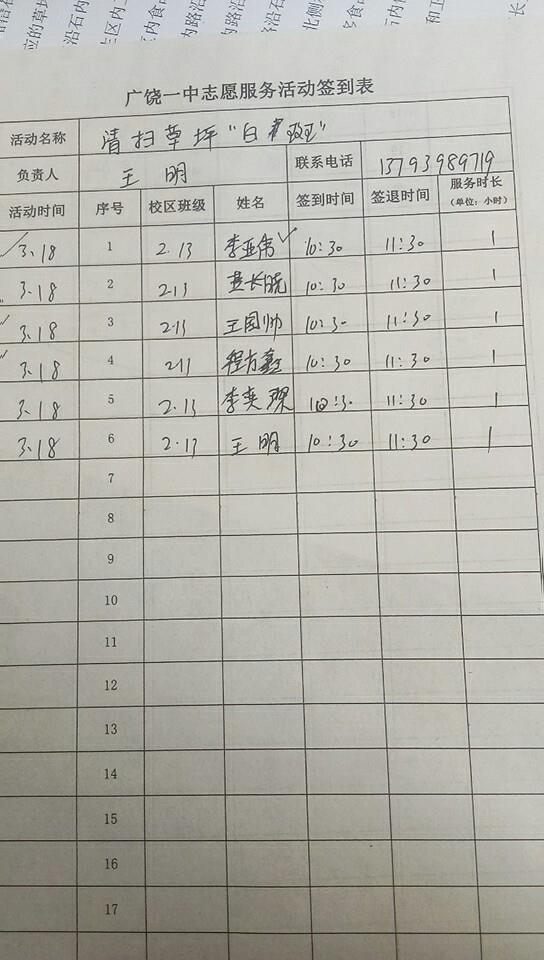 广饶一中志愿服务活动签到表
活动名称 清扫草坪"白色斑"
负责人 王明 联系电话 13793989719
活动时间 序号 校区班级 姓名 签到时间 签退时间 服务时长(单位:小时)
3.18 1 2.13 李亚伟 10:30 11:30 1
3.18 2 213 长晓 10:30 11:30 1
3.18 3 2.13 王国帅 10:30 11:30 1
3.18 4 211 程方鑫 10:30 11:30 1
3.18 5 2.13 李奕琛 10:30 11:30 1
3.18 6 2.13 王明 10:30 11:30 1
7
8
9
10
11
12
13
14
15
16
17